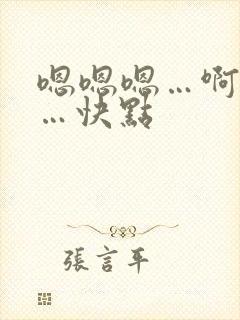 嗯嗯嗯…啊
…快點
張言平